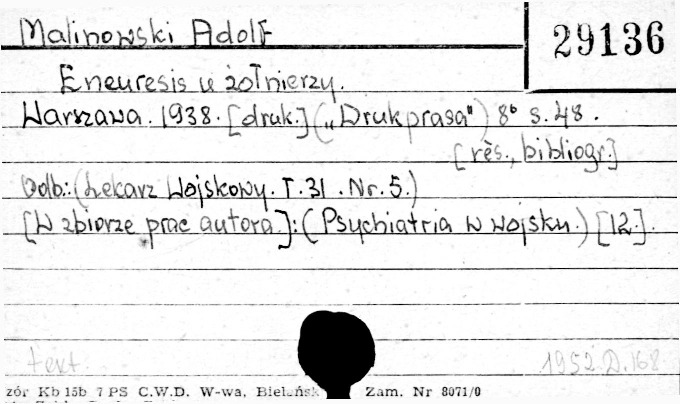 Malinowski Adolf
29136
Eneuresis u żołnierzy.
Warszawa. 1938. [druk.] („Drukprasa") 8° s. 48.
[rés., bibliogr.]
Odb.: (Lekarz Wojskowy. T. 31. Nr. 5.)
[W zbiorze prac autora.]: (Psychiatria w wojsku.) [12].
text
1952.D.168
zór Kb 15b 7 PS C.W.D. W-wa, Bieleńsk Zam. Nr 8071/0